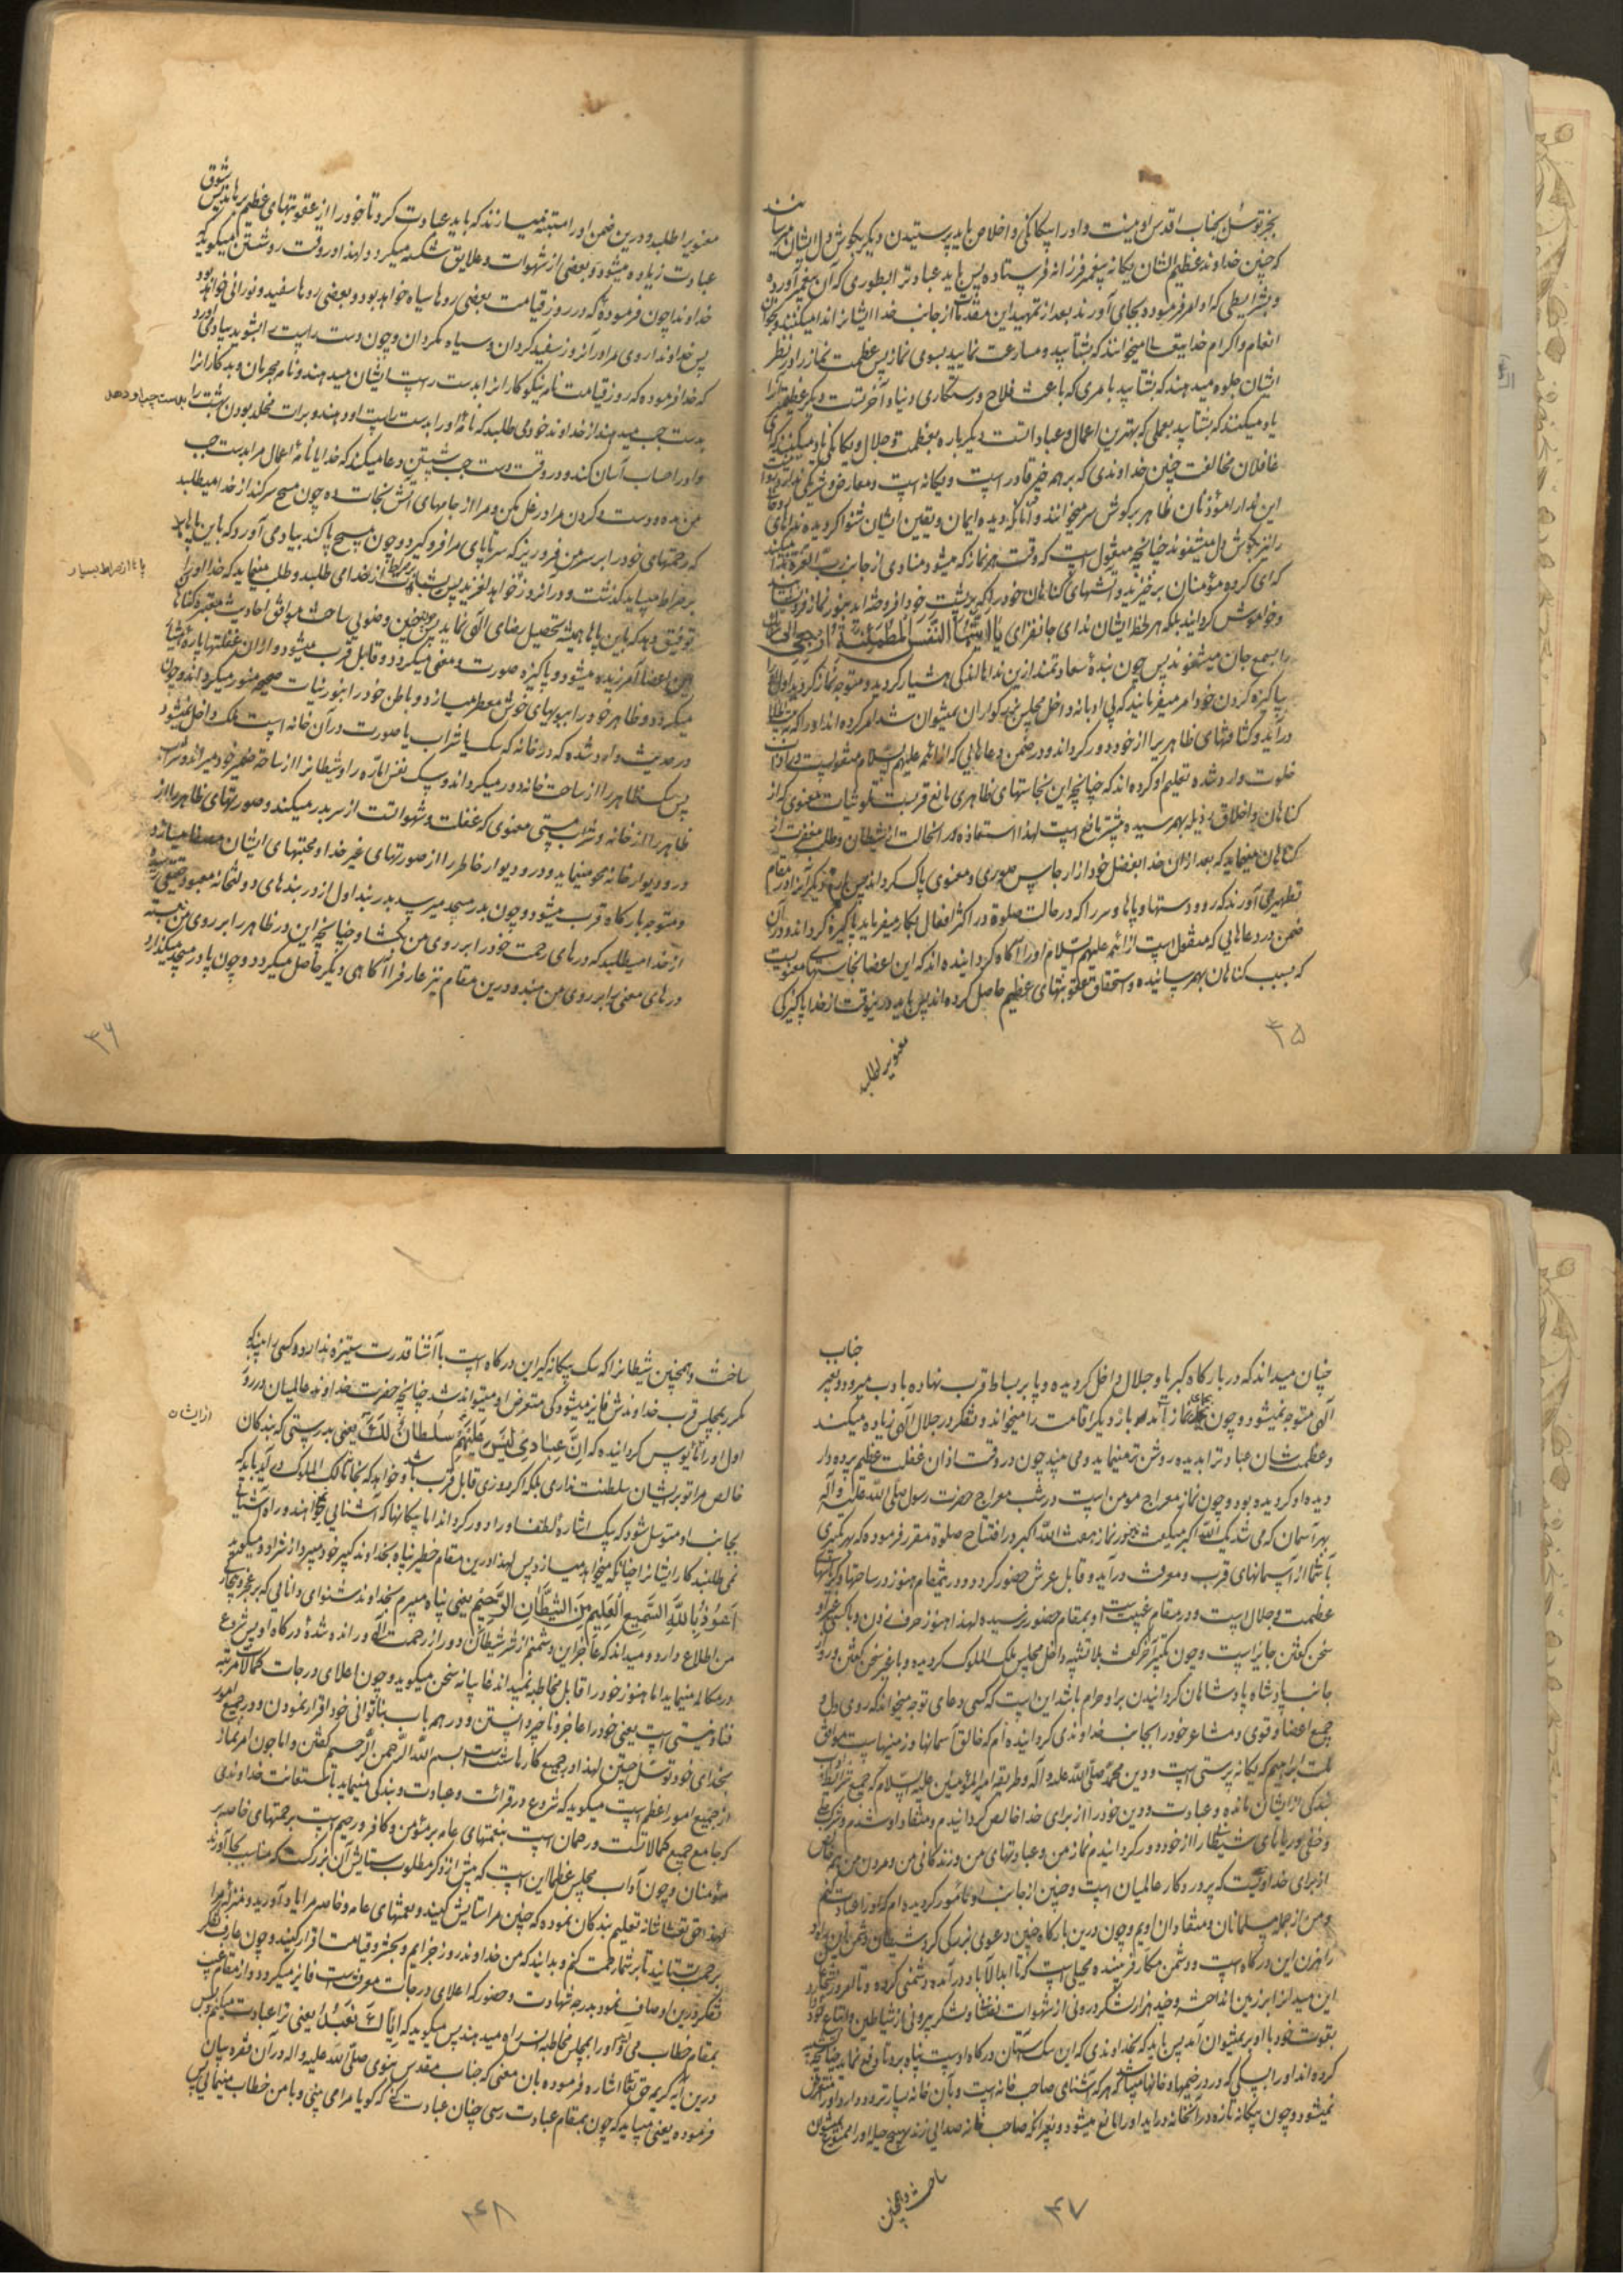 بجز توسل بجناب اقدس او نیست و او را بیکانکی و اخلاص باید پرستیدن دیکر بکوش دل ایشان میرسانند
که چنین خداوند عظیم الشان یکانه پیغمبر فرزانه فرستاده پس باید عبادتر ابطوری که آن پیغمبر آورده
و بشرایطی که او امر فرموده بجای آورند بعد از تمهید این مقدمات از جانب خدا ایشانرا ندا میکنند و بخوان
انعام و اکرام خدا میخوانند که بشتابید و مسارعت نمایید بسوی نماز پس عظمت نماز را در نظر
ایشان جلوه میدهند که بشتابید بامری که باعث فلاح و رستکاری دنیا و آخرتست دیکر عظیمتر
یاد میکنند که بشتابید بعملی که بهترین اعمال و عباداتست دیکر باره بعظمت و جلال و یکانکی یاد میکنند که ای
غافلان مخالفت چنین خداوندی که بر همه خیر قادر است و یکانه است و معارض و شریکی ندارد
این ندا را مؤذنان ظاهر بر کوش سر میخوانند و آنانکه دیده ایمان و یقین ایشان شنوا کردیده نداهای
را نیز بکوش دل میشنوند چنانچه منقول است که وقت هر نماز که میشود منادی از جانب رب العزة ندا میکند
که ای کروه مؤمنان برخیزید و آتشهای کناهان خود را که بر پشت خود افروخته‌اید بنور نماز فرونشانید
و خاموش کردانید بلکه هر لحظه ایشان ندای جانفزای یَا اَیَّتُهَا النَّفْسُ الْمُطْمَئِنَّةُ اِرْجِعِی
را بسمع جان میشنوند پس چون بندهٔ سعادتمند ازین نداها اندکی هشیار کردید و متوجه نماز کردید اول او را
بپاکیزه کردن خود امر میفرمایند که بی ادبانه داخل مجلس بزرکواران نمیتوان شد امر کرده اند او را که
در آید و کثافتهای ظاهر را از خود دور کرداند و در ضمن دعاهایی که از ائمه علیهم السلام منقولست در آداب
خلوت وارد شده تعلیم او کرده اند که چنانچه این نجاستهای ظاهری مانع قربست تلوثات معنوی که از
کناهان و اخلاق رذیله بهم رسیده بیشتر مانع است لهذا استعاذه در آنحالت از شیطان و طلب مغفرت از
کناهان مینماید که بعد از آن خدا بفضل خود از ارجاس صوری و معنوی پاک کرداند پس بار دیکر او را در مقام
تطهیر می آورند که رو و دستها و پاها و سر را که در حالت صلوة در اکثر افعال بکار میفرماید پاکیزه کرداند و در آن
ضمن در دعاهایی که منقول است از ائمه علیهم السلام او را آکاه کردانیده اند که این اعضا نجاستهای معنویست
که بسبب کناهان بهم رسانیده و استحقاق عقوبتهای عظیم حاصل کرده اند پس باید درینوقت از خدا پاکیزکی
معنویرا طلبد
۳۵
معنویرا طلبد و درین ضمن او را متنبه میسازند که باید عبادت کرد تا خود را از عقوبتهای عظیم برهاند پس شوق
عبادت زیاده میشود و بعضی از شهوات و علایق شکسته میکردد و لهذا در وقت رو شستن میکوید که
خداوندا چون فرمودهٔ که در روز قیامت بعضی روها سیاه خواهد بود و بعضی روها سفید و نورانی خواهد بود
پس خداوندا روی مرا در آنروز سفید کردان و سیاه مکردان و چون دست راست را بشوید بیاد می آورد
که خدا فرموده که روز قیامت نامهٔ نیکوکارانرا بدست راست ایشان میدهند و نامه مجرمان و بدکارانرا
بدست چپ میدهند از خداوند خود می طلبد که نامهٔ او را بدست راست او دهند و برات مخلد بودن بهشت را بدست چپ او دهد
و او را حساب آسان کند و در وقت دست چپ شستن دعا میکند که خدایا نامهٔ اعمال مرا بدست چپ
من مده و دست در کردن مرا در غل مکن و مرا از جامهای آتش نجات ده چون مسح سر کند از خدا میطلبد
که رحمتهای خود را بر سر من فرو ریز که سرتاپای مرا فرو کیرد و چون مسح پا کند بیاد می آورد که باین پاها
بر صراط میباید کذشت و در آنروز پاها از صراط بسیار خواهد لغزید پس ثبات قدم بر صراط از خدا می طلبد و طلب مینماید که خدا او را
توفیق دهد که باین پاها همیشه تحصیل رضای الهی نماید پس چنین وضویی ساخت موافق احادیث معتبره کناهان
این اعضا آمرزیده میشود و پاکیزهٔ صورت و معنی میکردد و قابل قرب میشود و از آن غفلتها پاره هشیار
میکردد و ظاهر خود را ببویهای خوش معطر میسازد و باطن خود را بنور نیات صحیحه منور میکرداند و چون
در حدیث وارد شده که در خانه که سک یا شراب یا صورت در آن خانه است ملک داخل نمیشود
پس سک ظاهر را از ساحت خانه دور میکرداند و سک نفس اماره را و شیطانرا از ساحة ضمیر خود میراند و شراب
ظاهر را از خانه و شراب مستی معنوی که غفلت و شهواتست از سر بدر میکند و صورتهای ظاهر را از
در و دیوار خانه محو مینماید و در و دیوار خاطر را از صورتهای غیر خدا و محبتهای ایشان مصفا میسازد
و متوجه بارکاه قرب میشود و چون بدر مسجد میرسد بدربند اول از دربندهای دولتخانه معبود حقیقی رسیده
از خدا میطلبد که درهای رحمت خود را بر روی من بکشا و چنانچه این در ظاهر را بر روی من نبسته
درهای معنی را بر روی من مبند و درین مقام نیز عارفرا آکاهی دیکر حاصل میکردد و چون پا در مسجد میکذارد
۳۶
چنان میداند که در بارکاه کبریا و جلال داخل کردیده و پا بر بساط قرب نهاده با ادب میرود و بغیر جناب
الهی متوجه نمیشود و چون بجای نماز آمد بار دیکر اقامت را میخواند و تفکر در جلال الهی زیاده میکند
و عظمت شان عبادترا بدیده روشن تر مینماید و می بیند چون در وقت اذان غفلت عظیم پرده دار
دیده او کردیده بود و چون نماز معراج مومن است و در شب معراج حضرت رسول صلی الله علیه و آله
بهر آسمان که می شد یک الله اکبر میکفت در نماز هفت الله اکبر در افتتاح صلوة مقرر فرموده که بهر تکبیری
بآسمانی از آسمانهای قرب و معرفت در آید و قابل عرش حضور کردد و در ششم مقام هنوز در ساحتها
عظمت و جلال است و در مقام غیبت است و بمقام حضور نرسیده لهذا هنوز حرف زدن و با کسی غیر او
سخن کفتن جایز است و چون تکبیر آخر کفت بلا تشبیه داخل مجلس ملک الملوک کردیده و با غیر سخن کفتن و رو از
جانب پادشاه پادشاهان کردانیدن بر او حرام باشد این است که کسی دعای توجه میخواند که روی دل و
جمیع اعضا و قوی و مشاعر خود را بجانب خداوندی کردانیده ام که خالق آسمانها و زمینهاست موافق
ملت ابراهیم که یکانه پرستی است و دین محمد صلی الله علیه و آله و طریقه امیرالمؤمنین علیه السلام که جمیع شرایط
بندکی از ایشان مانده و عبادت و دین خود را از برای خدا خالص کردانیدم و منقاد او شدم و شرک جلی
و خفی و ریاهای شیطانرا از خود دور کردانیدم نماز من و عبادتهای من و زندکانی من و مردن من همه خالص
از برای خداوندیست که پرورد کار عالمیان است و چنین از جانب او مامور کردیده ام که او را عبادت کنم
و من از جمله مسلمانان و منقادان اویم و چون درین بارکاه چنین دعوی بزرکی کرد شیطان دشمن این راه و
راهزن این درکاه است و دشمن مکار فریبنده محیلی است که تا ابدالآباد در آمده دشمنی کرده و تا امروز شجاعان
این میدانرا بر زمین انداخته و چند هزار لشکر درونی از شهوات نفسانی و لشکر بیرونی از شیاطین و اتباع خود دارد
بقوت خود با او برنمیتوان آمد پس باید که بخداوندی که این سک آستان درکاه اوست پناه برد تا دفع نماید چنانچه تشبیه
کرده اند او را بسکی که در در خیمها و خانها میباشد که هر که آشنای صاحب خانه است و بآن خانه بسیار تردد دارد او را متعرض
نمیشود و چون بیکانهٔ تازه در آنخانه در آید او را مانع میشود و بغیر آنکه صاحب خانه صدایی زند بهیچ حیله او را ممنوع نمیتوان
ساخت و همچنین
۳۷
ساخت و همچنین شیطانرا که سک بیکانه کیر این درکاه است با آشنا قدرت ستیزه ندارد و کسی را بیند که
مکرر بمجلس قرب خداوندش فایز میشود کی متعرض او میتواند شد چنانچه حضرت خداوند عالمیان در روز
اول او را مایوس از ایشان کردانیده که اِنَّ عِبَادِی لَیْسَ لَکَ عَلَیْهِمْ سُلطانٌ یعنی بدرستی که بندکان
خالص مرا تو بر ایشان سلطنت نداری بلکه اکر دوری قابل قرب باشد و خواهد که بخانه ملک الملوک در آید باید که
بجانب او متوسل شود که بیک اشاره لطف او را دور کرداند اما بیکانها که آشنایی نمیخواهند و راه آشنایی
نمی طلبند کار ایشانرا چنانکه میخواهد میسازد پس لهذا درین مقام خطیر پناه بخداوند کبیر خود میبرد از شر او و میکوید
اَعُوذُ بِاللّهِ السَّمِیعِ الْعَلِیمِ مِنَ الشَّیْطَانِ الرَّجِیْمِ یعنی پناه میبرم بخداوند شنوای دانایی که بر عجز و بیچارکی
من اطلاع دارد و میداند که عاجزم ازین دشمنم از شر شیطان دور از رحمت اله و رانده شدهٔ درکاه او پس شروع
در مکالمه مینماید اما هنوز خود را قابل مخاطبه نمیداند غایبانه سخن میکوید و چون اعلای درجات کمالات مرتبه
فنا و نیستی است یعنی خود را عاجز و ناچیز دانستن و در همه باب بناتوانی خود اقرار نمودن و در جمیع امور
بخدای خود توسل جستن لهذا در جمیع کارها سنت است بسم الله الرحمن الرحیم کفتن و اما چون امر نماز
از جمیع امور اعظم است میکوید که شروع در قرائت و عبادت و بندکی مینماید باستعانت خداوندی
که جامع جمیع کمالاتست و رحمان است بنعمتهای عامه بر مؤمن و کافر و رحیم است برحمتهای خاصه بر
مؤمنان و چون آداب مجلس عظما این است که پیش از ذکر مطلوب ستایش آن بزرک که مناسب بجا آورند
لهذا حق تعالی شانه تعلیم بندکان نموده که چنین مرا ستایش کنید و نعمتهای عامه و خاصه مرا یاد آورید و منزلت مرا
برحمت بستانید تا بر شما رحمت کنم و بدانید که من خداوند روز جزایم و بحشر و قیامت اقرار کنید و چون عارف تفکر
تفکر درین اوصاف نمود بدرجه شهادت و حضور که اعلای درجات معرفتست فایز میکردد و از مقام غیبت
بمقام خطاب می آید و او را بمجلس مخاطبه انس راه میدهند پس میکوید که اِیَّاکَ نَعْبُدُ یعنی ترا عبادت میکنم و بس
درین آیه کریمه حق تعالی اشاره فرموده بآن معنی که جناب مقدس نبوی صلی الله علیه و آله در آن فقره بیان
فرموده یعنی میباید که چون بمقام عبادت رسی چنان عبادت کنی که کویا مرا می بینی و با من خطاب مینمایی پس
۳۸